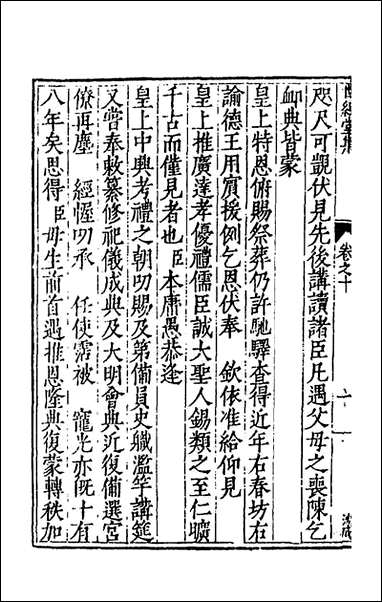 咫尺可觀伏見先後講讀諸臣凡遇父母之喪陳乞
卹典皆蒙
皇上特恩俯賜祭葬仍許馳驛查得近年右春坊右
諭德王用賓援例乞恩伏奉 欽依准給仰見
皇上推廣達孝優禮儒臣誠大聖人錫類之至仁曠
千古而僅見者也臣本庸愚恭逢
皇上中興考禮之朝叨賜及第備員史職濫竽講筵
又嘗奉敕纂修祀儀成典及大明會典近復備選宮
僚再塵 經幄叨承 任使霑被 寵光亦旣十有
八年矣恩得臣母生前首遇推恩隆典復蒙轉秩加
卷之十
十一